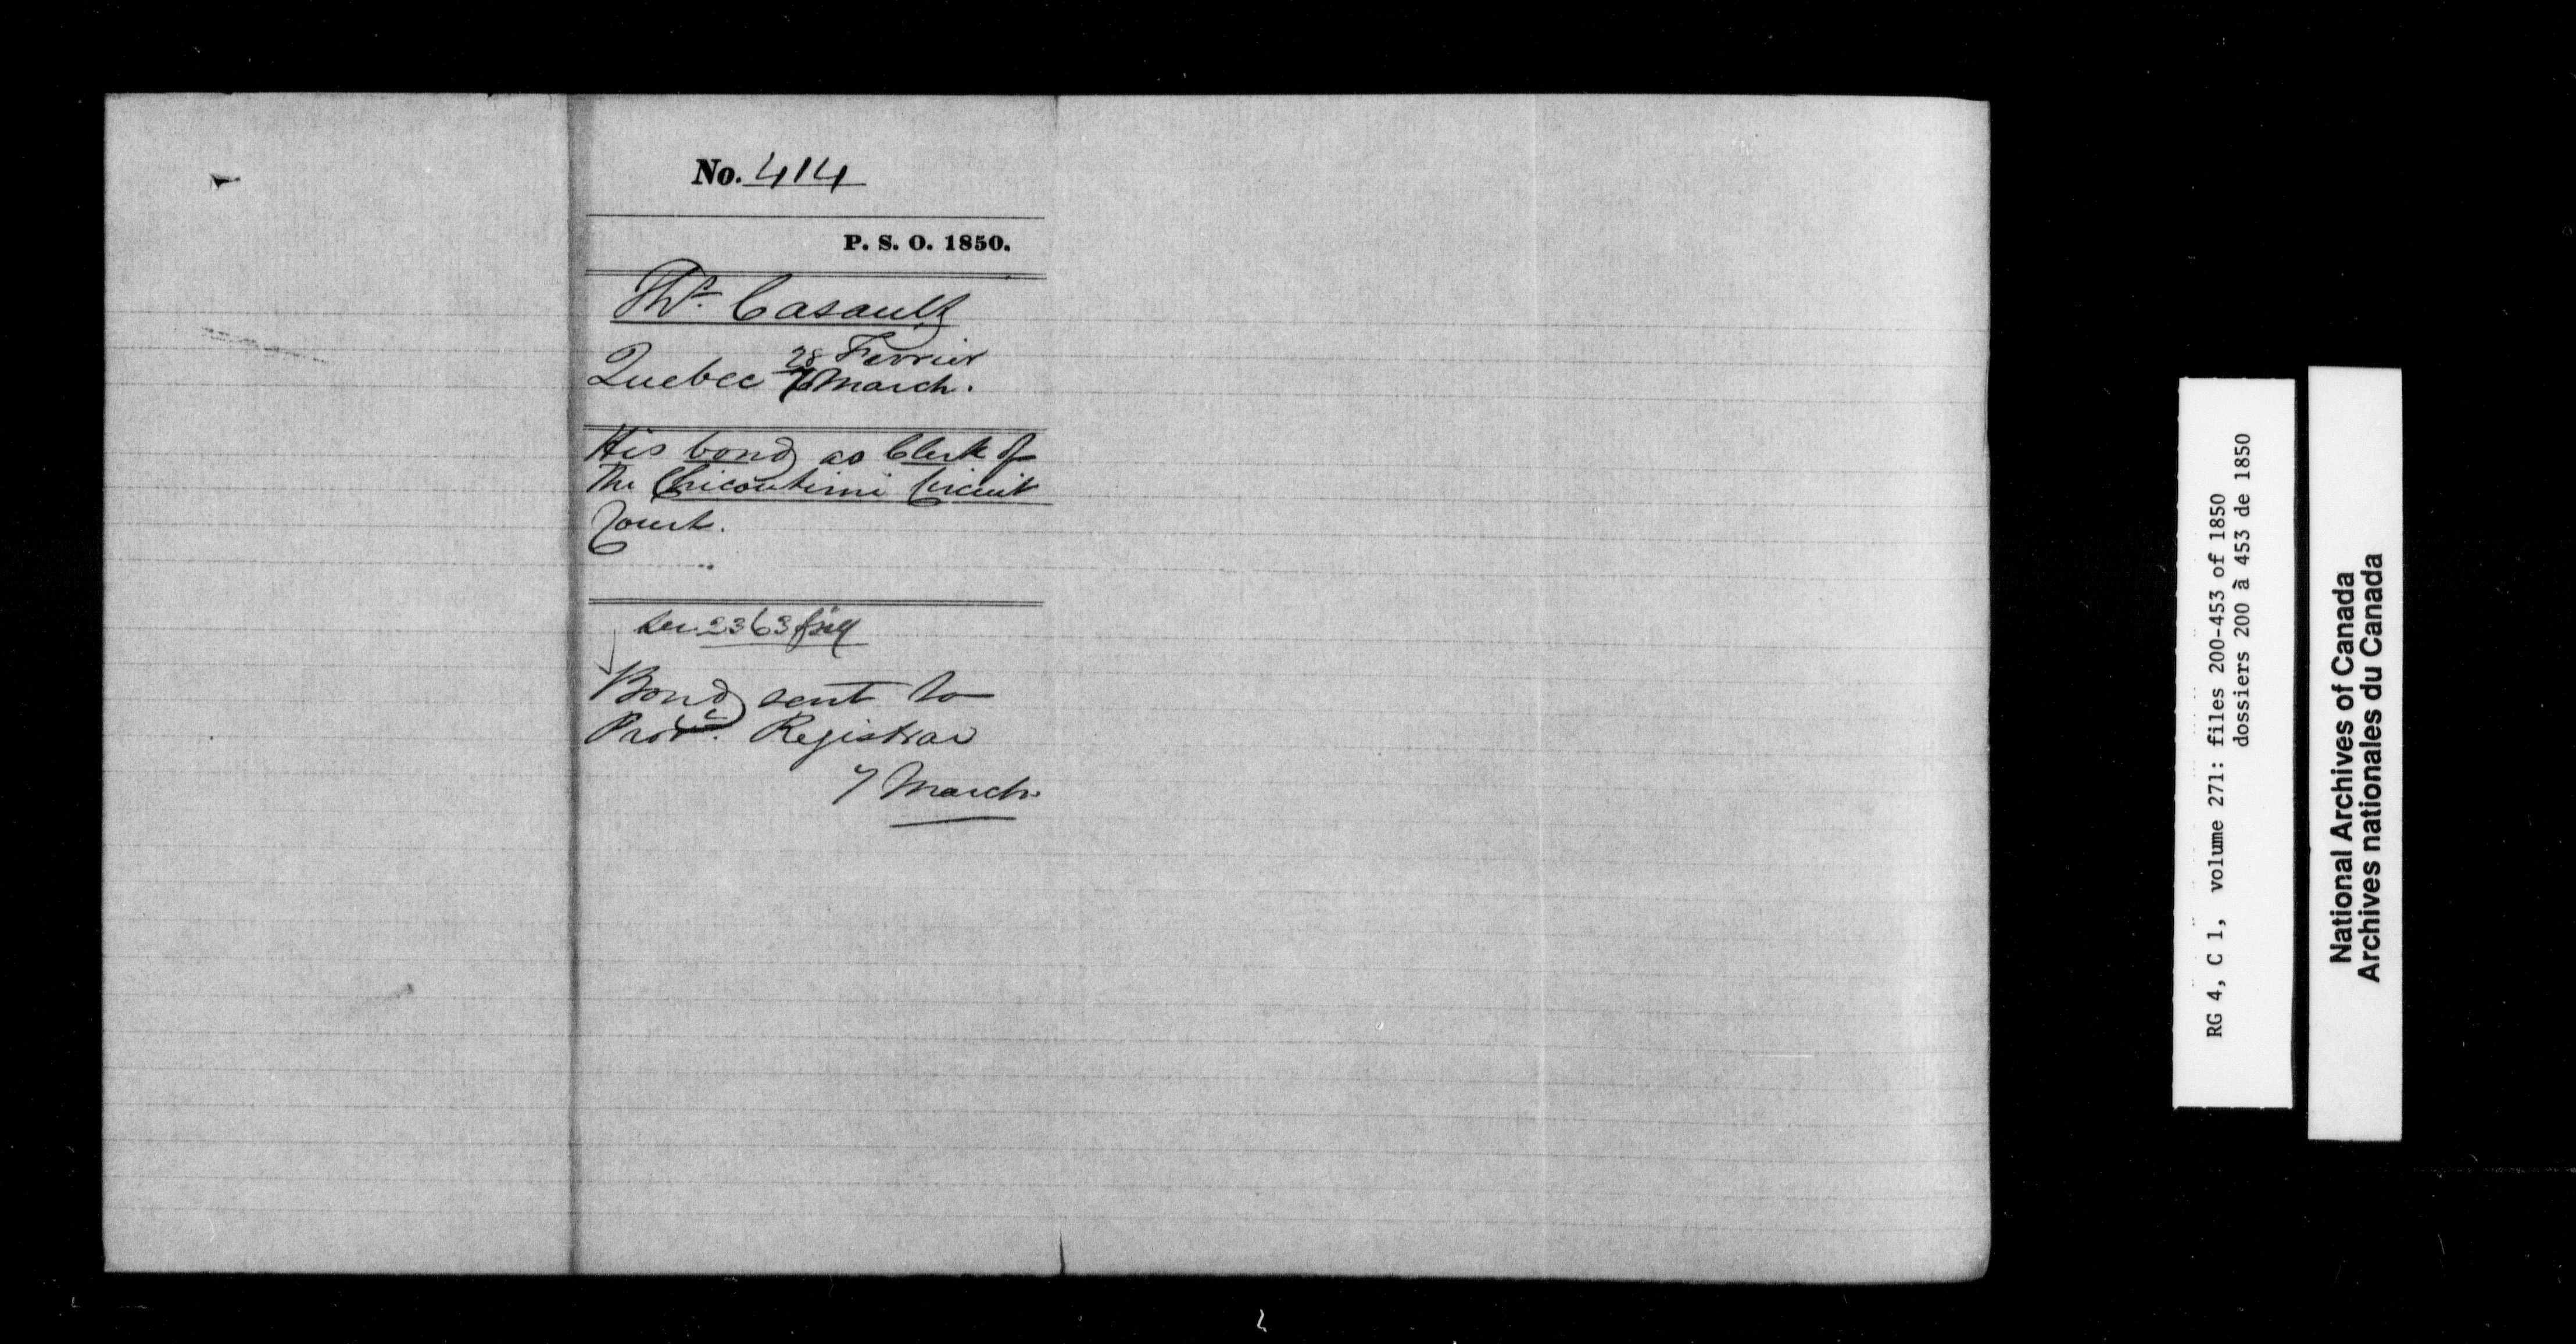 No. 414
P. S. O. 1850.
Ths. Casault
28 Fevrier
Quebec 7 March.
His bond as Clerk of
the Chicoutimi Circuit
Court.
See 2363
Bond sent to
Provl. Registrar
7 March
RG 4, C 1, volume 271: files 200-453 of 1850
dossiers 200 à 453 de 1850
National Archives of Canada
Archives nationales du Canada